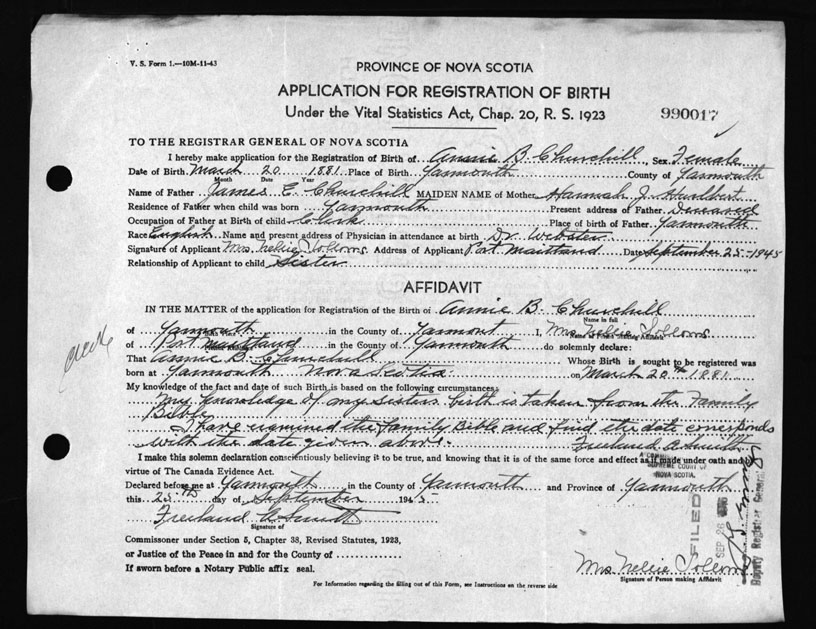 V. S. Form 1.—10M-11-43
PROVINCE OF NOVA SCOTIA
APPLICATION FOR REGISTRATION OF BIRTH
Under the Vital Statistics Act, Chap. 20, R. S. 1923
990017
TO THE REGISTRAR GENERAL OF NOVA SCOTIA
I hereby make application for the Registration of Birth of Annie B. Churchill, Sex Female
Date of Birth March 20 1881 Place of Birth Yarmouth County of Yarmouth
Month Date Year
Name of Father James E. Churchill MAIDEN NAME of Mother Hannah J. Hurlbert
Residence of Father when child was born Yarmouth Present address of Father Deceased
Occupation of Father at Birth of child Clerk Place of birth of Father Yarmouth
Race English Name and present address of Physician in attendance at birth Dr. Webster
Signature of Applicant Mrs. Nellie Sollows Address of Applicant Port Maitland Date September 25-1945
Relationship of Applicant to child Sister
AFFIDAVIT
IN THE MATTER of the application for Registration of the Birth of Annie B. Churchill
Name in full
of Yarmouth in the County of Yarmout I, Mrs. Nellie Sollows
Name of Person Making Affidavit
of Port Maitland in the County of Yarmouth do solemnly declare:
That Annie B. Churchill Whose Birth is sought to be registered was
born at Yarmouth Nova Scotia on March 20th 1881
My knowledge of the fact and date of such Birth is based on the following circumstances:
My knowledge of my sisters birth is taken from the Family
Bible
I have examined the family Bible and find the date coresponds
with the date given above. Freeland A Smith
I make this solemn declaration conscientiously believing it to be true, and knowing that it is of the same force and effect as if made under oath and by
virtue of The Canada Evidence Act.
SUPREME COURT OF
NOVA SCOTIA.
Declared before me at Yarmouth in the County of Yarmouth and Province of Yarmouth
this 25th day of September 1945
Freeland A Smith
Signature of
Commissioner under Section 5, Chapter 38, Revised Statutes, 1923,
or Justice of the Peace in and for the County of
If sworn before a Notary Public affix seal.
FILED
SEP 26
Deputy Registrar General
Mrs Nellie Sollows
Signature of Person making Affidavit
For Information regarding the filling out of this Form, see Instructions on the reverse side